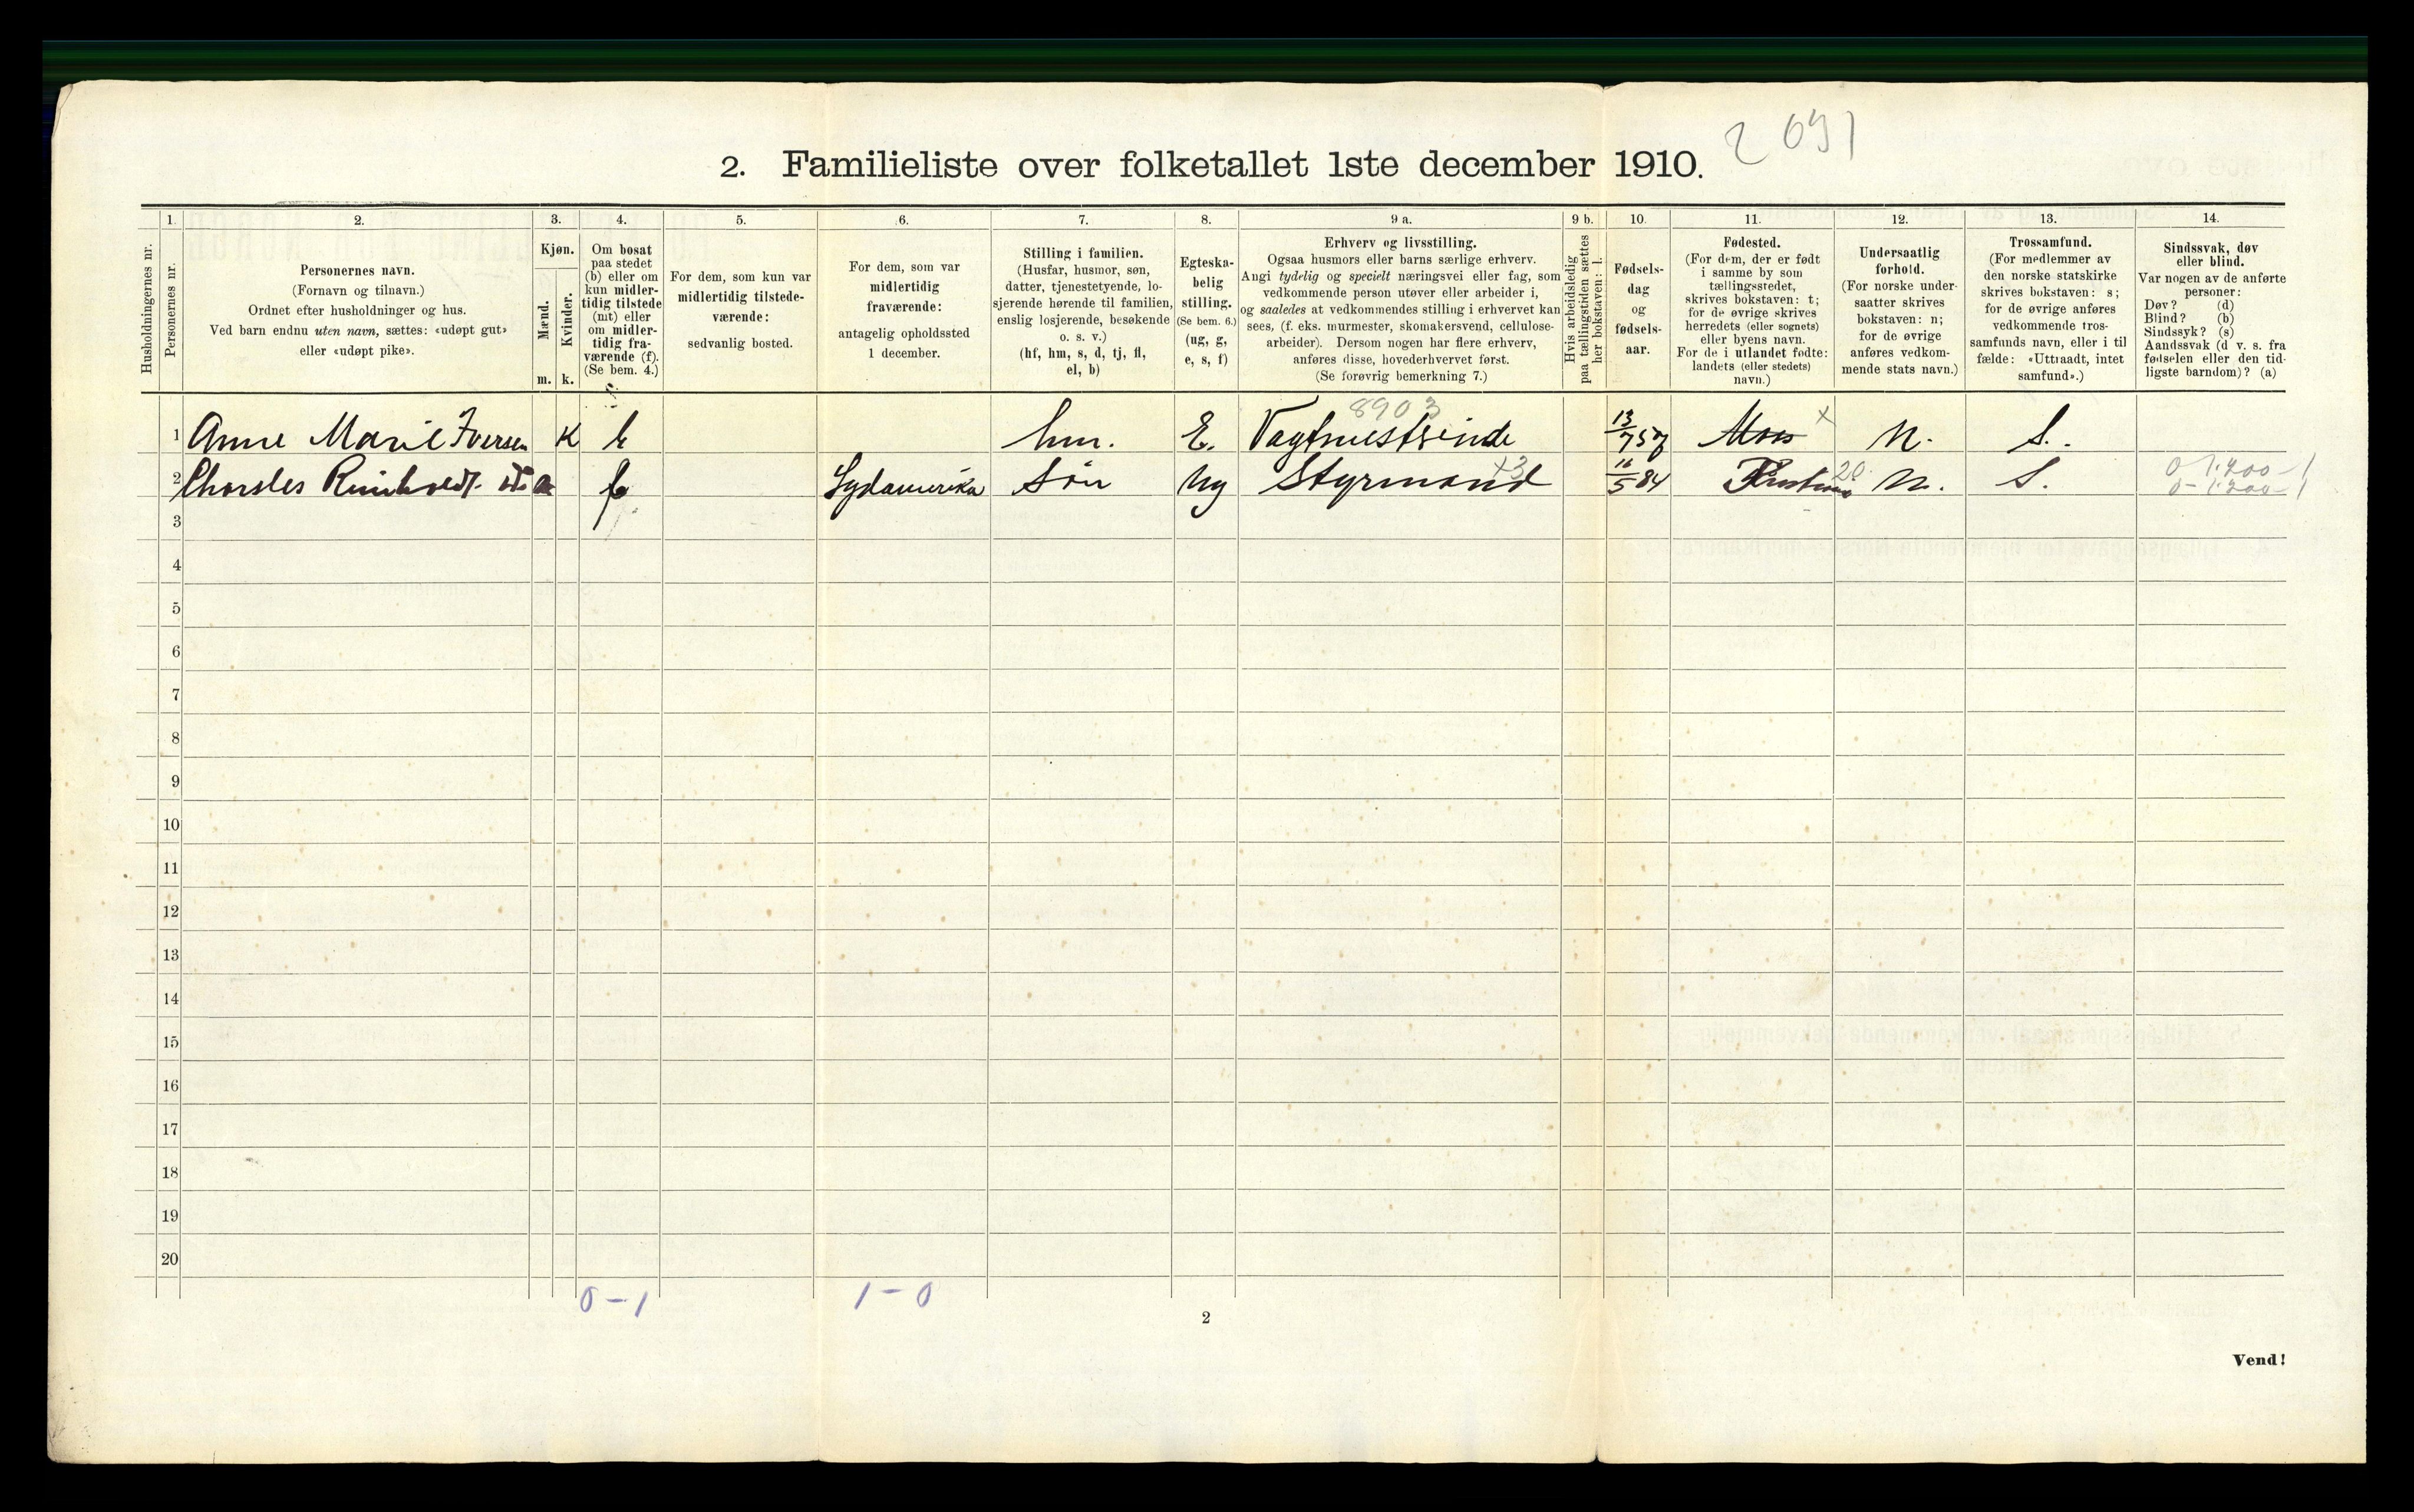 2 091
2. Familieliste over folketallet 1ste december 1910.
Husholdningernes nr.
1.
Personernes nr.
2.
Personernes navn.
(Fornavn og tilnavn.)
Ordnet efter husholdninger og hus.
Ved barn endnu uten navn, sættes: «udøpt gut»
eller «udøpt pike».
3.
Kjøn.
Mænd.
Kvinder.
m. k.
4.
Om bosat
paa stedet
(b) eller om
kun midler-
tidig tilstede
(mt) eller
om midler-
tidig fra-
værende (f).
(Se bem. 4.)
5.
For dem, som kun var
midlertidig tilstede-
værende:
sedvanlig bosted.
6.
For dem, som var
midlertidig
fraværende:
antagelig opholdssted
1 december.
7.
Stilling i familien.
(Husfar, husmor, søn,
datter, tjenestetyende, lo-
sjerende hørende til familien,
enslig losjerende, besøkende
o. s. v.)
(hf, hm, s, d, tj, fl,
el, b)
8.
Egteska-
belig
stilling.
(Se bem. 6.)
(ug, g,
e, s, f)
9 a.
Erhverv og livsstilling.
Ogsaa husmors eller barns særlige erhverv.
Angi tydelig og specielt næringsvei eller fag, som
vedkommende person utøver eller arbeider i,
og saaledes at vedkommendes stilling i erhvervet kan
sees, (f. eks. murmester, skomakersvend, cellulose-
arbeider). Dersom nogen har flere erhverv,
anføres disse, hovederhvervet først.
(Se forøvrig bemerkning 7.)
9 b.
Hvis arbeidsledig
paa tællingstiden sættes
her bokstaven: l.
10.
Fødsels-
dag
og
fødsels-
aar.
11.
Fødested.
(For dem, der er født
i samme by som
tællingsstedet,
skrives bokstaven: t;
for de øvrige skrives
herredets (eller sognets)
eller byens navn.
For de i utlandet fødte:
landets (eller stedets)
navn.)
12.
Undersaatlig
forhold.
(For norske under-
saatter skrives
bokstaven: n;
for de øvrige
anføres vedkom-
mende stats navn.)
13.
Trossamfund.
(For medlemmer av
den norske statskirke
skrives bokstaven: s;
for de øvrige anføres
vedkommende tros-
samfunds navn, eller i til
fælde: «Uttraadt, intet
samfund».)
14.
Sindssvak, døv
eller blind.
Var nogen av de anførte
personer:
Døv? (d)
Blind? (b)
Sindssyk? (s)
Aandssvak (d. v. s. fra
fødselen eller den tid-
ligste barndom)? (a)
8903
1 Anne Marie Iversen K b hm. E. 13/7 57 Moss x N. S.
2 f Sydamerika Søn ug Styrmand x3 16/5 84 20 N. S. 0-1.200-1
0-1.200-1
3
4
5
6
7
8
9
10
11
12
13
14
15
16
17
18
19
20
0-1 1-0
2
Vend!